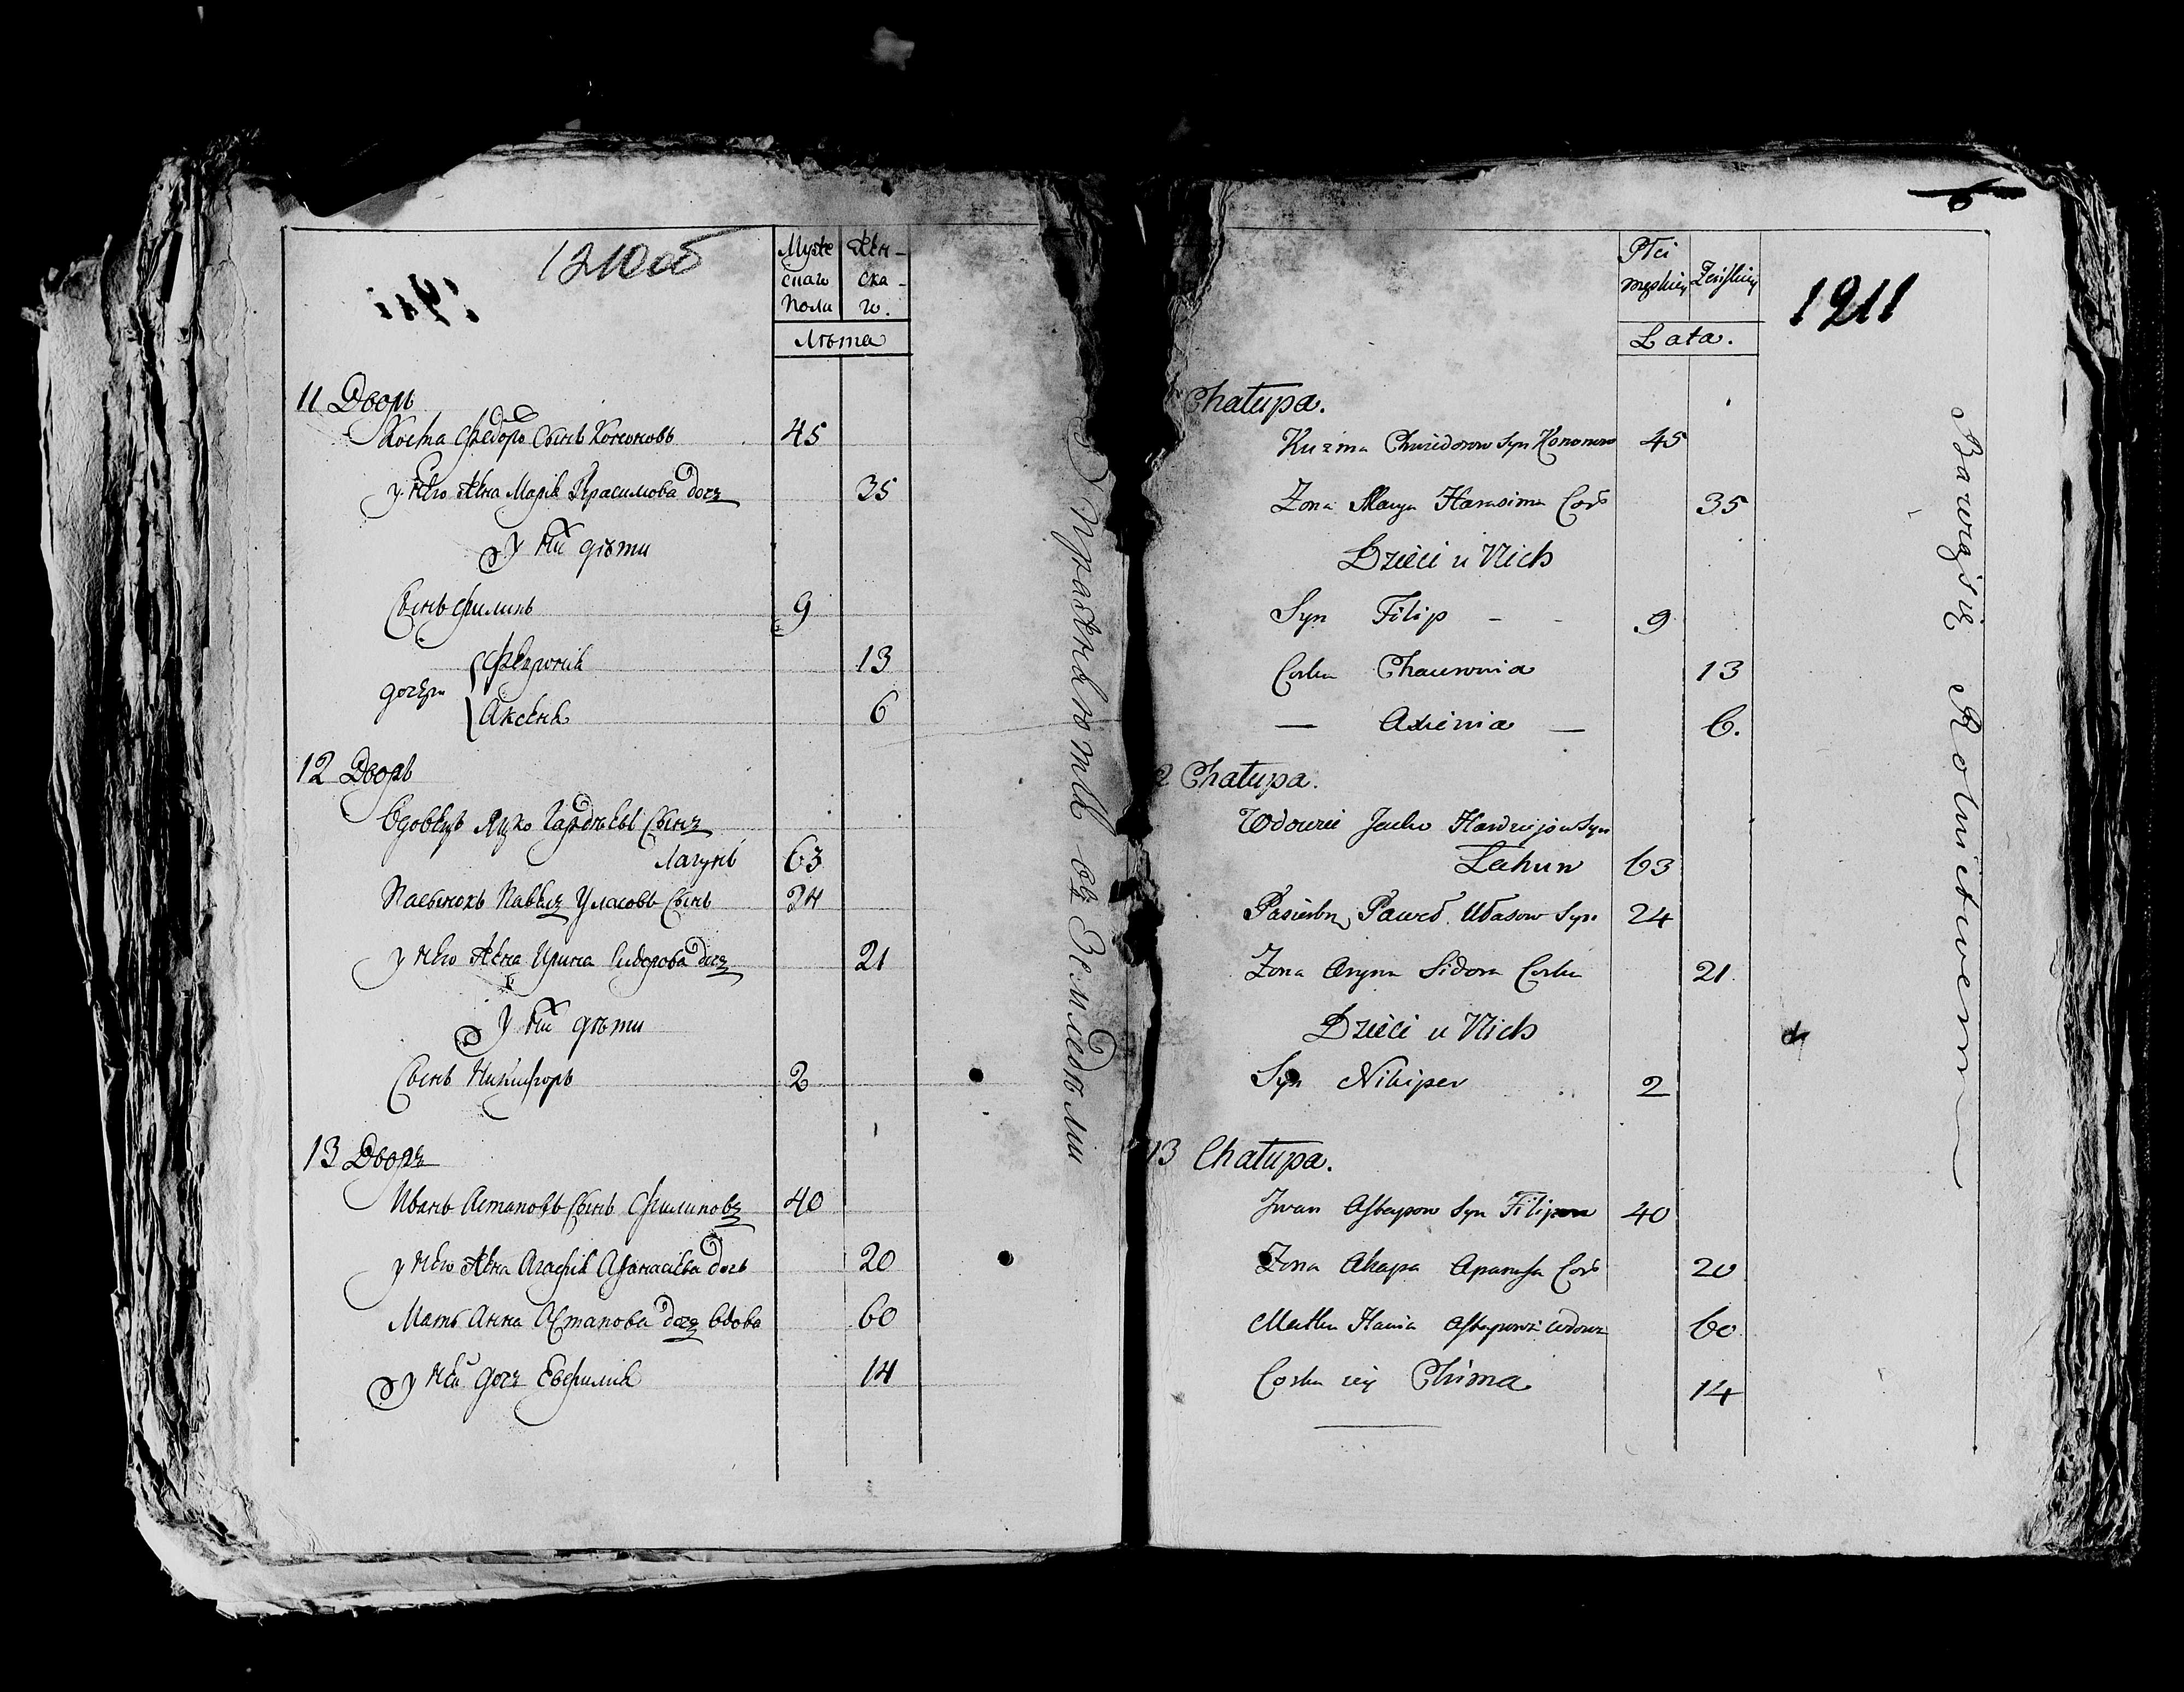 1210об
Муже
скаго
Пола
Жен-
ска-
го.
Лѣта
11 Дворъ
Коста Федоръ Сынъ Кононовъ 45
у него жена Марія Герасимова дочъ 35
У нiи дѣти
Сынъ Филипъ 9
дочери
Февронiя 13
Аксеня 6
12 Дворъ
Вдовецъ Яцко Гардѣевъ Сынъ
Лагунъ 63
Пасынокъ Павелъ Уласовъ Сынъ 24
у него жена Ирина Сидорова дочъ 21
У нiи дѣти
Сынъ Никифоръ 2
13 Дворъ
Иванъ Астаповъ Сынъ Филиповъ 40
у него жена Агафiя Афанасiева дочь 20
Мать Анна Астапова дочъ вдова 60
у ней дочъ Евфимiя 14
Упражняются въ Земледѣлiи
1211
Płci
męskiey
Żeńskiey
Lata.
Chałupa.
Kuzma Chwiedorow Syn Kononow 45
Zona Marya Harasima Cor 35
Dzieci u Nich
Syn Filip - - 9
Corka Chauronia 13
— Axienia — 6.
2 Chałupa.
Wdowiec Jacko Hawdziejow Syn
Łahun 63
Pasierb Paweł Ułasow Syn 24
Zona Aryna Sidora Corka 21
Dzieci u Nich
Syn Nikiper 2
13 Chałupa.
Jwan Astapow Syn Filipow 40
Zona Ahapa Apanasa Cor 20
Matka Hania Astapowa wdowa 60
Corka iey Chima 14
Bawią się Rolnictwem